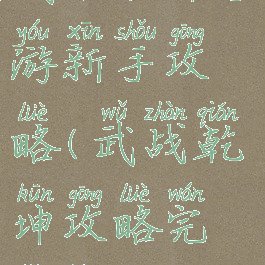 yóu xīn shǒu gōng
游新手攻
lüè wǔ zhàn qián
略(武战乾
kūn gōng lüè wán
坤攻略完